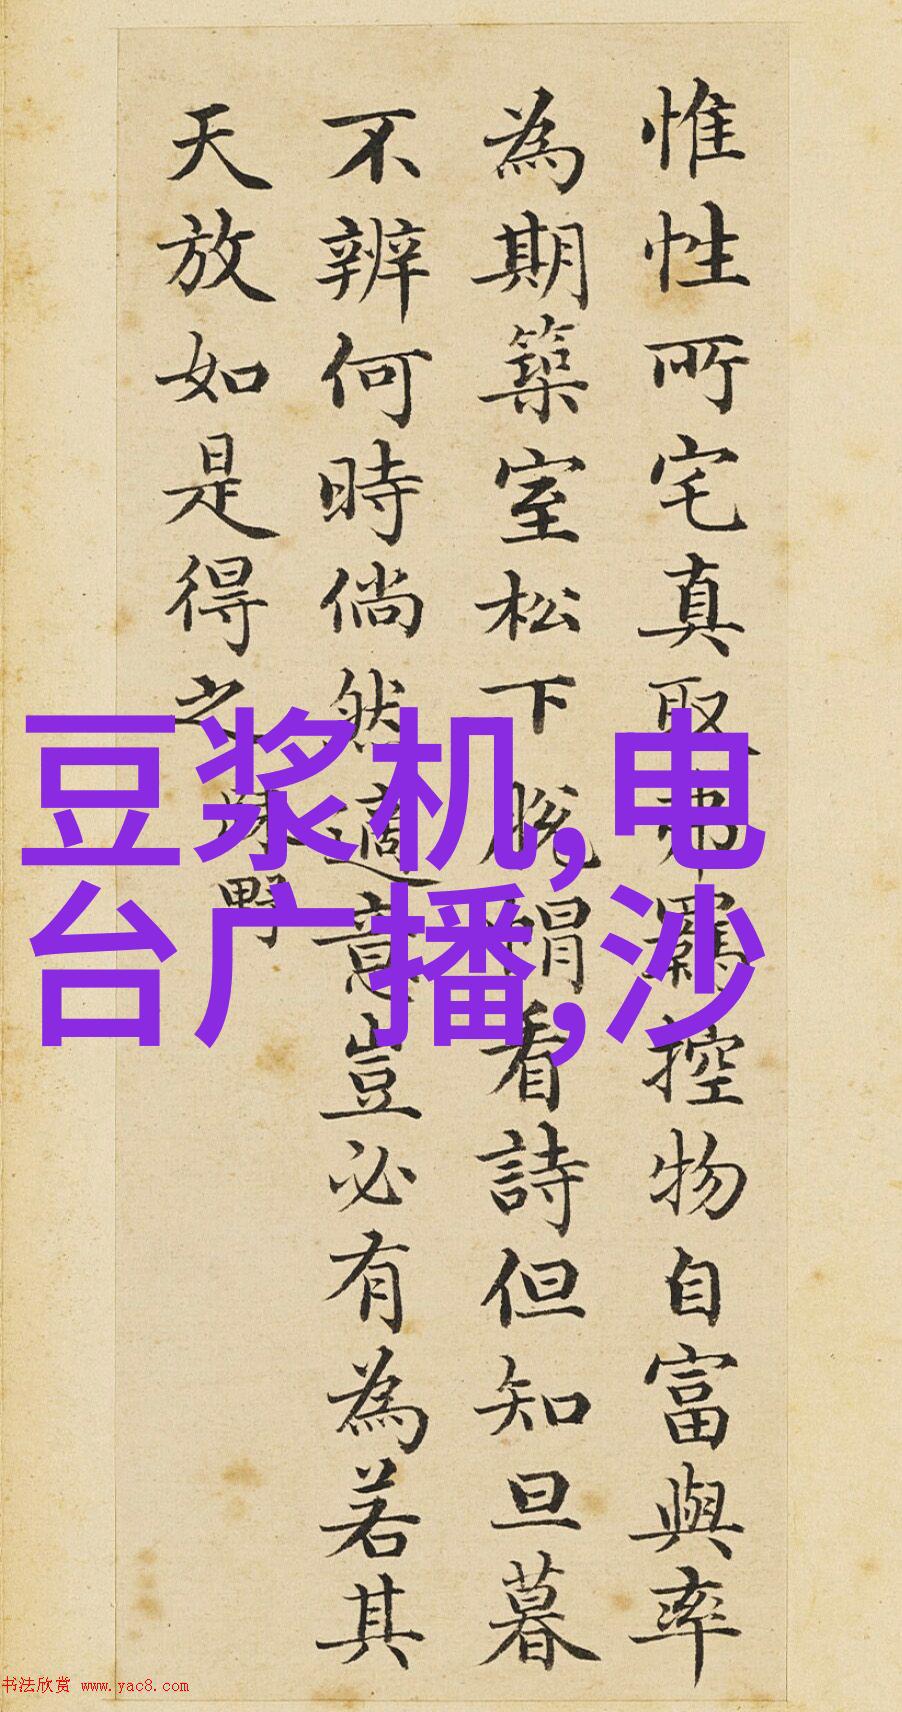 惟性所宅真取弗羈控物自富與率
為期築室松下脫帽看詩但知旦暮
不辨何時倘然適意豈必有為若其
天放如是得之
野
豆浆机,电
台广播,沙
书法欣赏 www.yac8.com